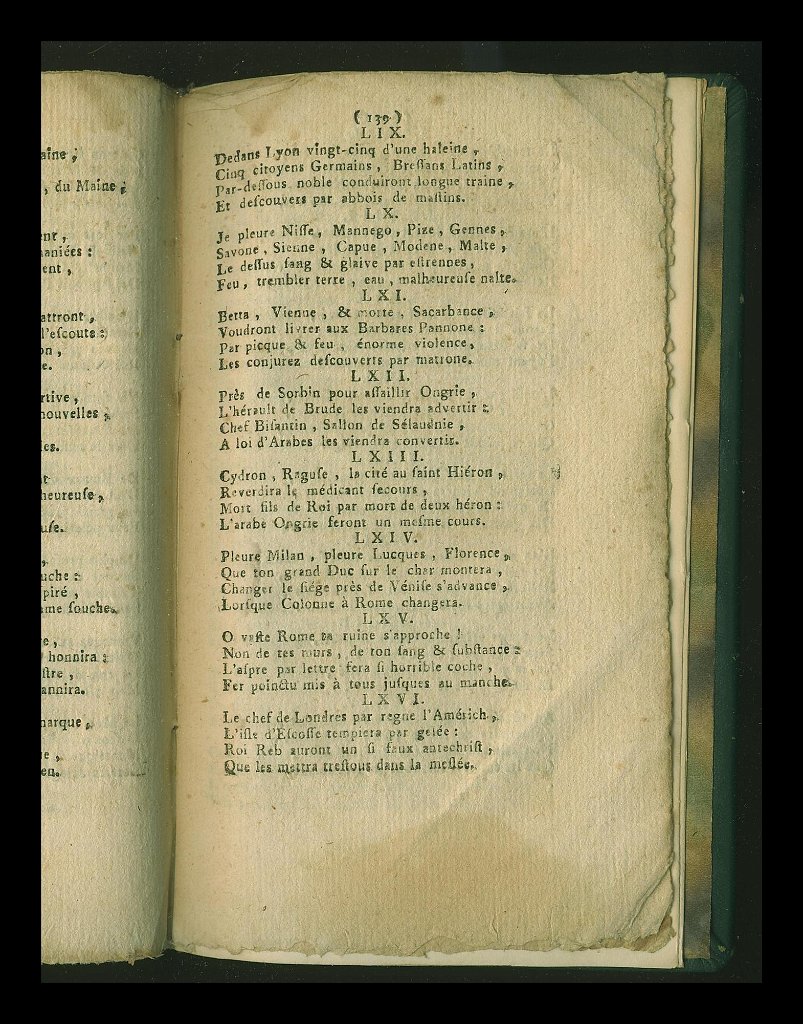 aine ;
, du Maine ;
ent ,
aniées :
ent ,
attront ,
l'eſcoute :
on ,
e.
rtive ,
nouvelles ,
les.
t
heureuſe ,
uſe.
,
uche :
piré ,
me ſouche.
e ,
honnira :
ſtre ,
annira.
marque ,
e ,
en.
( 139 )
LIX.
Dedans Lyon vingt-cinq d'une haleine ,
Cinq citoyens Germains , Breſſans Latins ,
Par-deſſous noble conduiront longue traine ,
Et deſcouvers par abbois de maſtins.
LX.
Je pleure Niſſe , Mannego , Pize , Gennes ,
Savone , Sienne , Capue , Modene , Malte ,
Le deſſus ſang & glaive par eſtrennes ,
Feu , trembler terre , eau , malheureuſe nolte.
LXI.
Betta , Vienne , & morte , Sacarbance ,
Voudront livrer aux Barbares Pannone :
Par picque & feu , énorme violence ,
Les conjurez deſcouverts par matrone.
LXII.
Près de Sorbin pour aſſaillir Ongrie ,
L'hérault de Brude les viendra advertir :
Chef Biſantin , Sallon de Sélauonie ,
A loi d'Arabes les viendra convertir.
LXIII.
Cydron , Raguſe , la cité au ſaint Hiéron ,
Reverdira le médicant ſecours ,
Mort fils de Roi par mort de deux héron :
L'arabe Ongrie feront un meſme cours.
LXIV.
Pleure Milan , pleure Lucques , Florence ,
Que ton grand Duc ſur le char montera ,
Changer le ſiége près de Véniſe s'advance ,
Lorſque Colonne à Rome changera.
LXV.
O vaſte Rome ta ruine s'approche !
Non de tes murs , de ton ſang & ſubſtance :
L'aſpre par lettre fera ſi horrible coche ,
Fer poinctu mis à tous juſques au manche.
LXVI.
Le chef de Londres par regne l'Américh ,
L'iſle d'Eſcoſſe tempiera par gelée :
Roi Reb auront un ſi faux antechriſt ,
Que les mettra treſtous dans la meſlée.